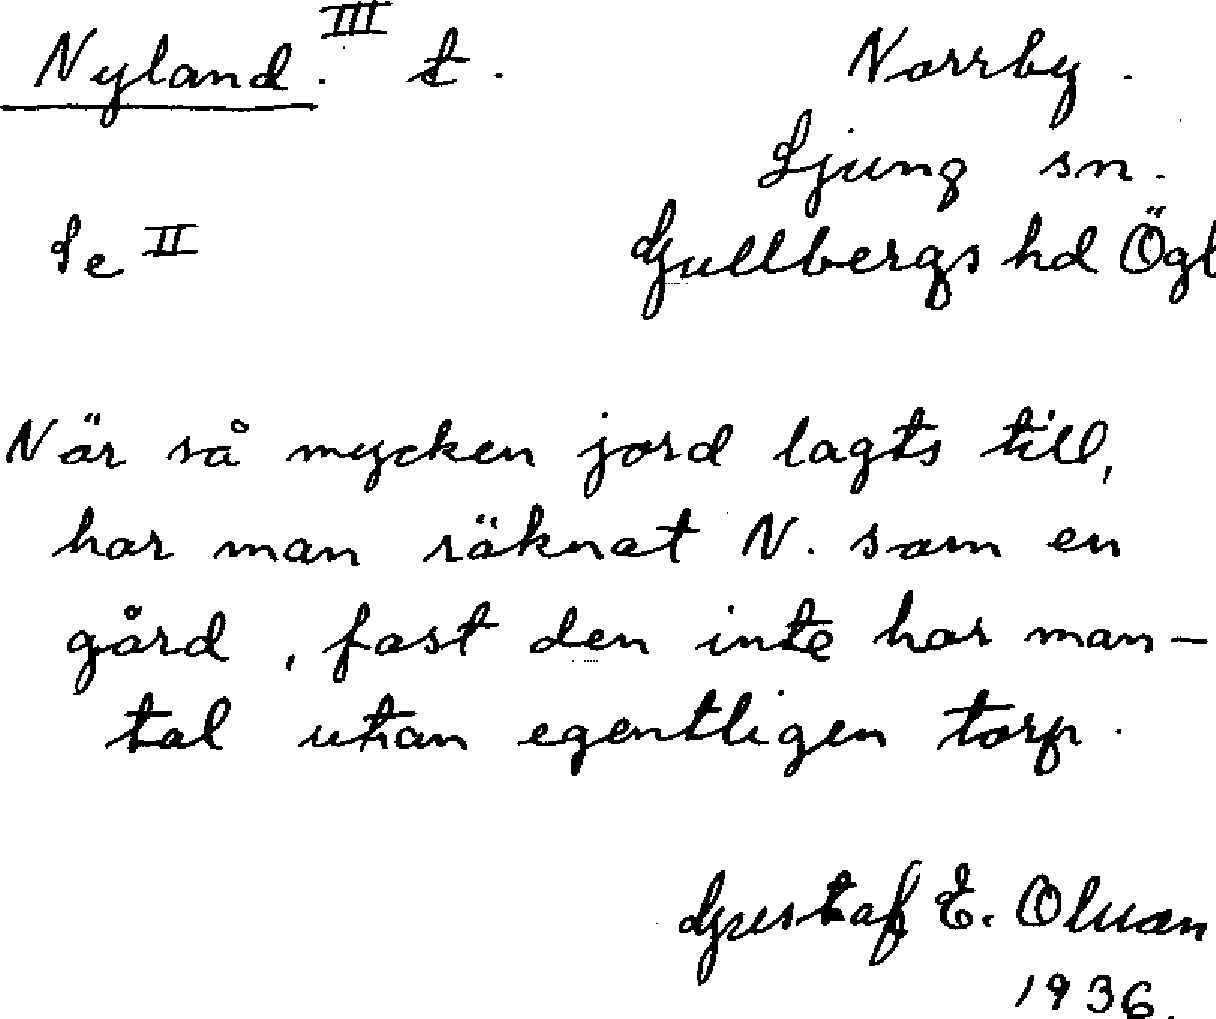 Nyland. III t.
Norrby.
Ljung sn.
Se II
Gullbergs hd Ögl
När så mycken jord lagts till,
har man räknat N. som en
gård, fast den inte har man-
tal utan egentligen torp.
Gustaf E. Olman
1936.